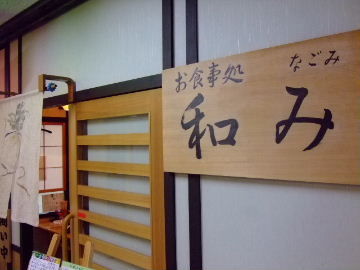 お食事処
なごみ
和み